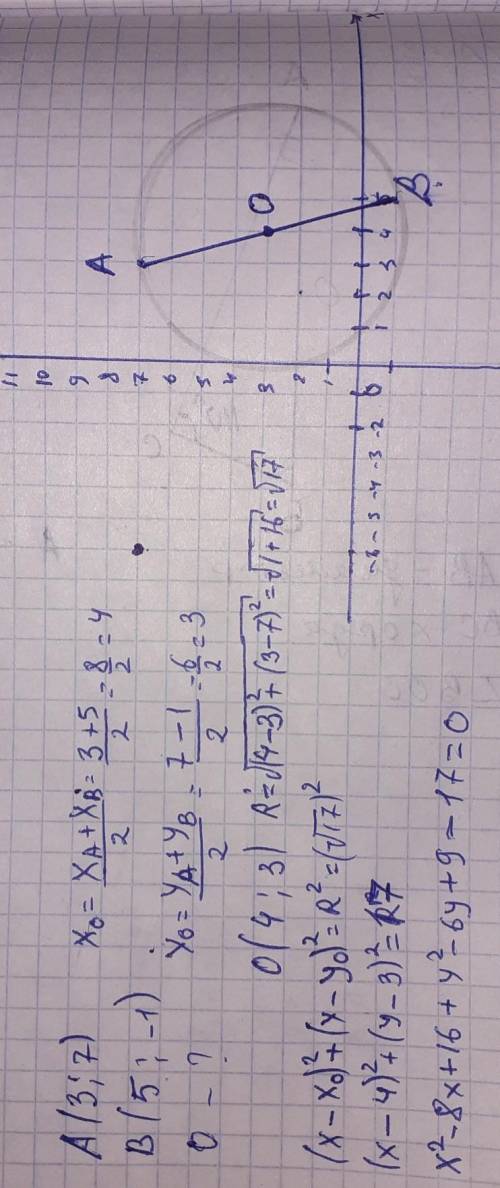 A(3;7) x₀ = (x_A + x_B)/2 = (3+5)/2 = 8/2 = 4
B(5;-1)
O - ? y₀ = (y_A + y_B)/2 = (7-1)/2 = 6/2 = 3
O(4;3) R = √((4-3)² + (3-7)²) = √(1+16) = √17
(x-x₀)² + (y-y₀)² = R² = (√17)²
(x-4)² + (y-3)² = 17
x² - 8x + 16 + y² - 6y + 9 - 17 = 0
11
10
9
8
7 A
6
5
4
3 O
2
1
-6 -5 -4 -3 -2 0 1 2 3 4 5 x
B